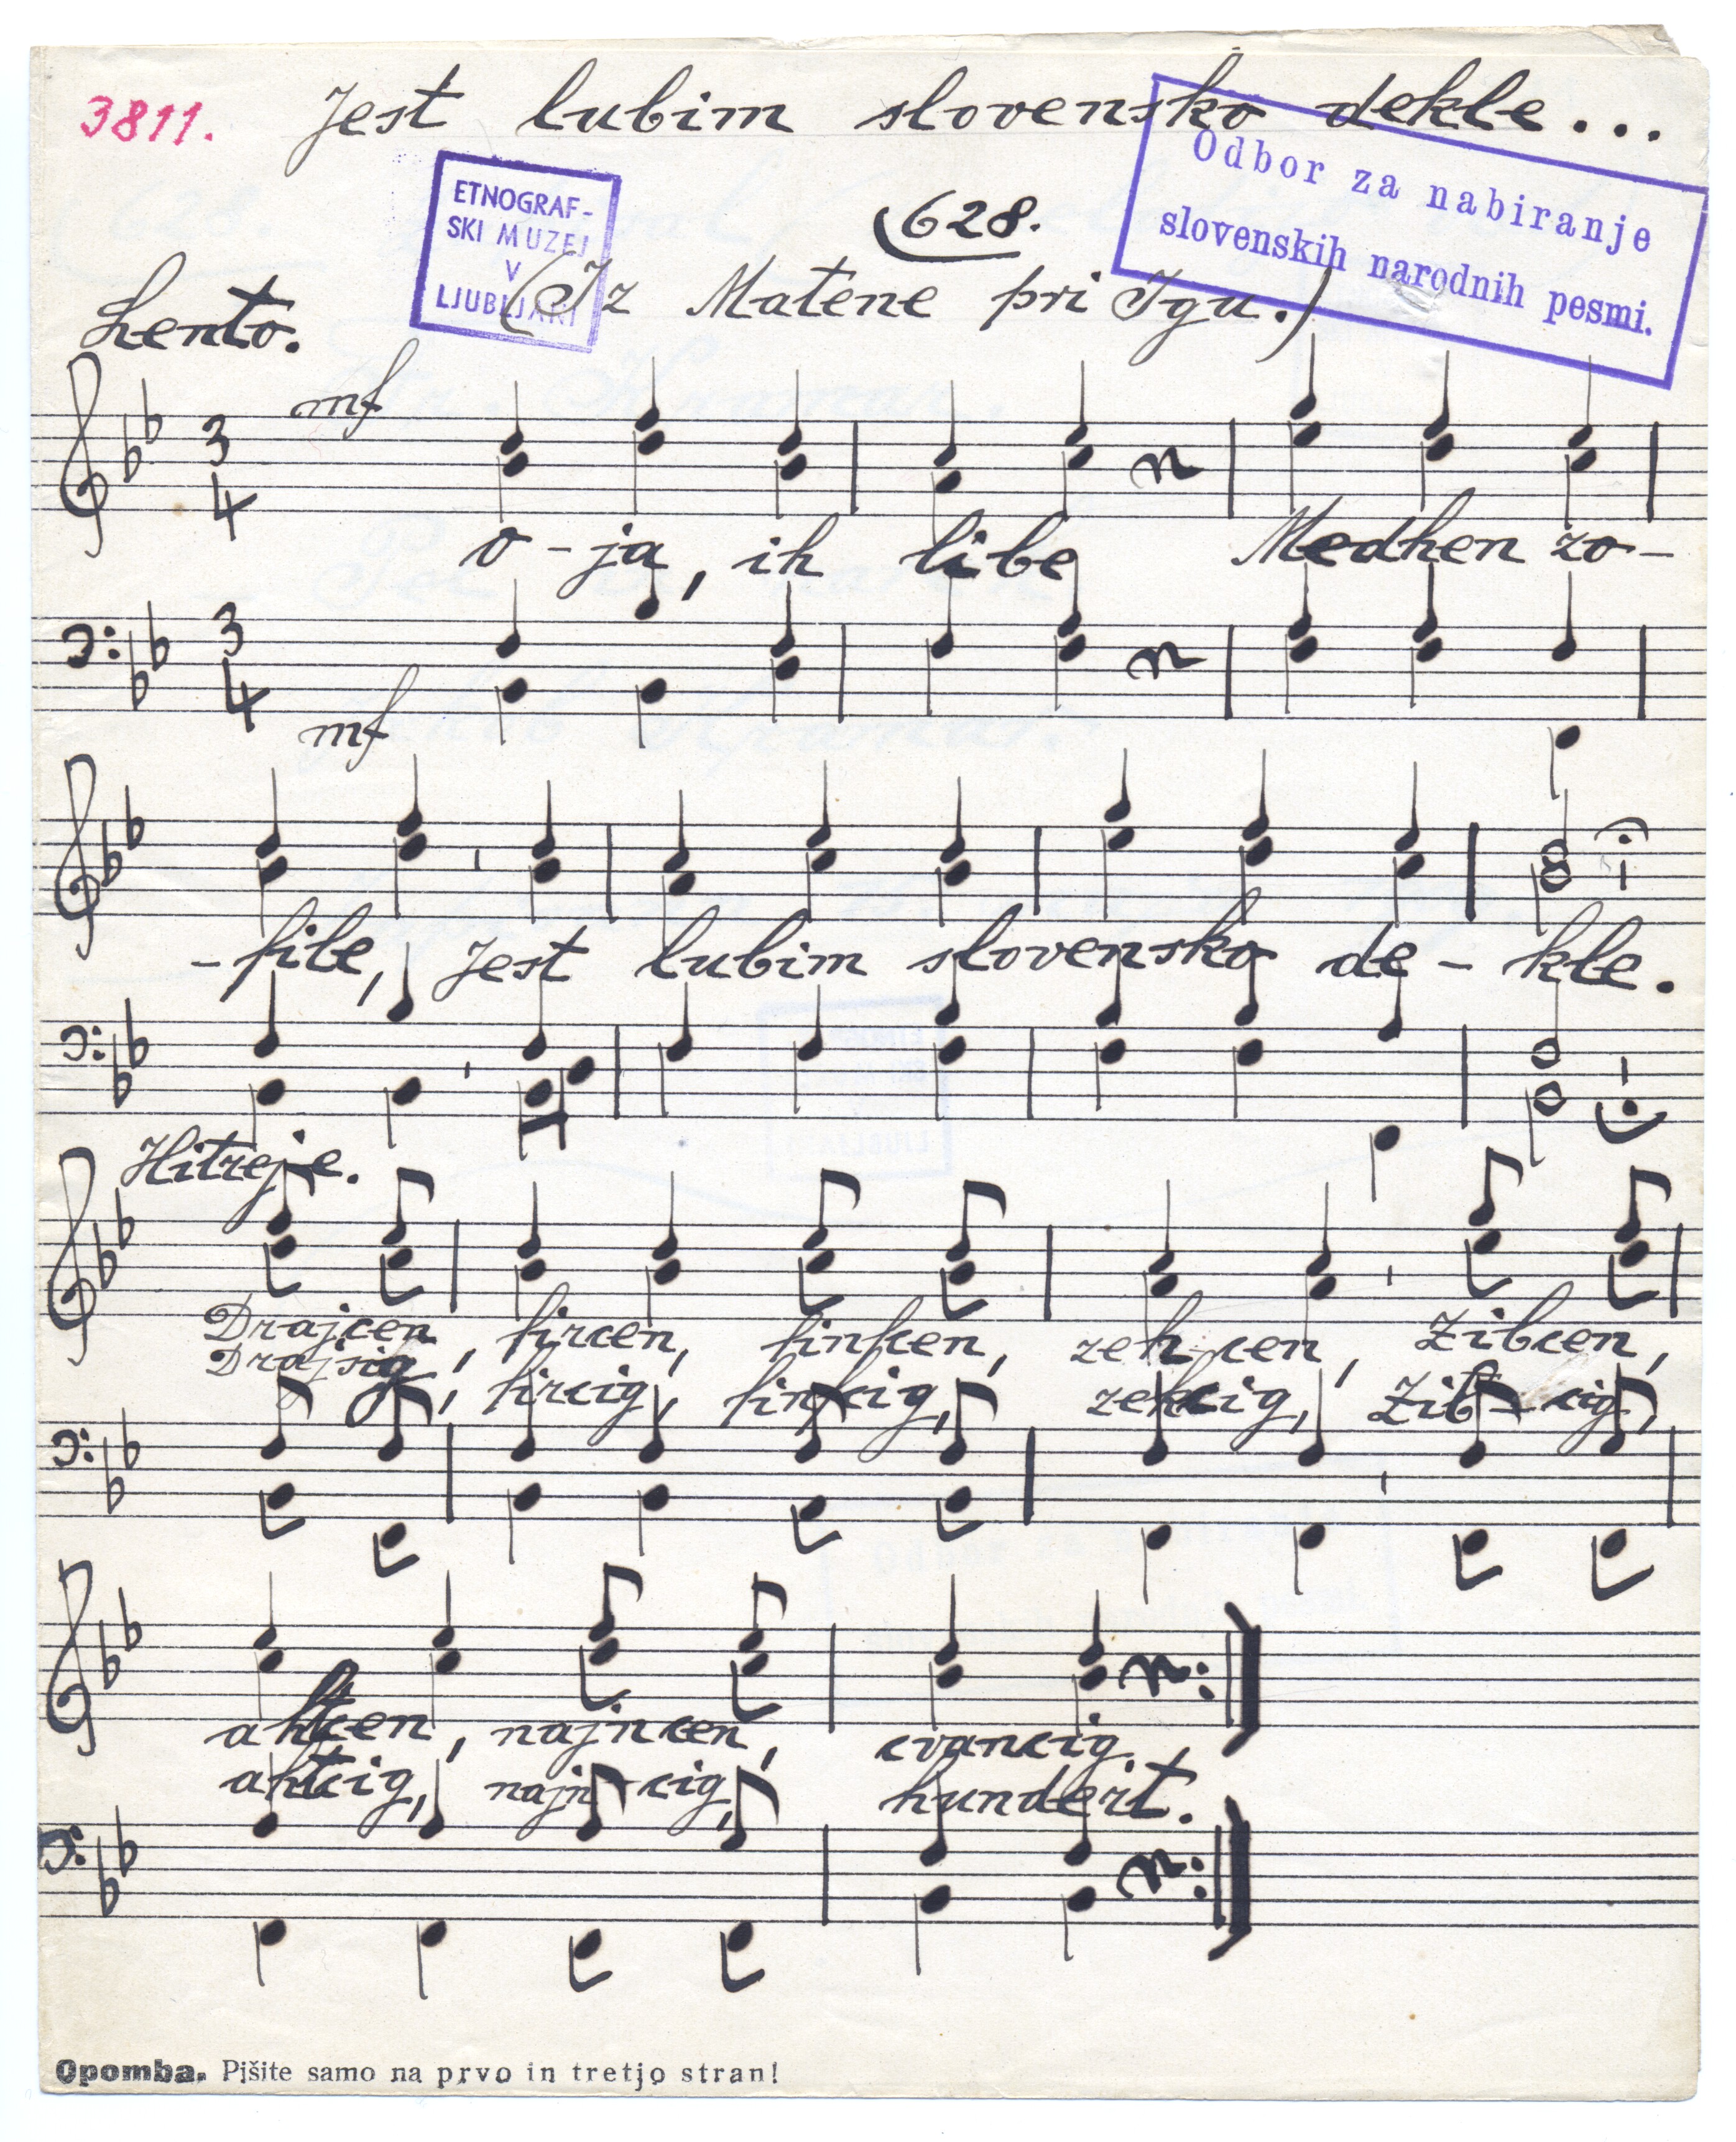 3811. Jest lubim slovensko dekle...
Odbor za nabiranje
slovenskih narodnih pesmi.
ETNOGRAF-
SKI MUZEJ
V
LJUBLJANI
628.
(Iz Matene pri Igu.)
Lento.
mf
3
4
o-ja, ih libe Medhen zo-
3
4
mf
-file, Jest lubim slovensko de-kle.
Hitreje.
Drajcen, fircen, finfcen, zeh-cen, Zibcen,
Drajsig, fircig, finfcig, zehcig, Zib-cig,
ahtcen, najncen, cvancig.
ahtcig, najn-cig, hundert.
Opomba. Pišite samo na prvo in tretjo stran!